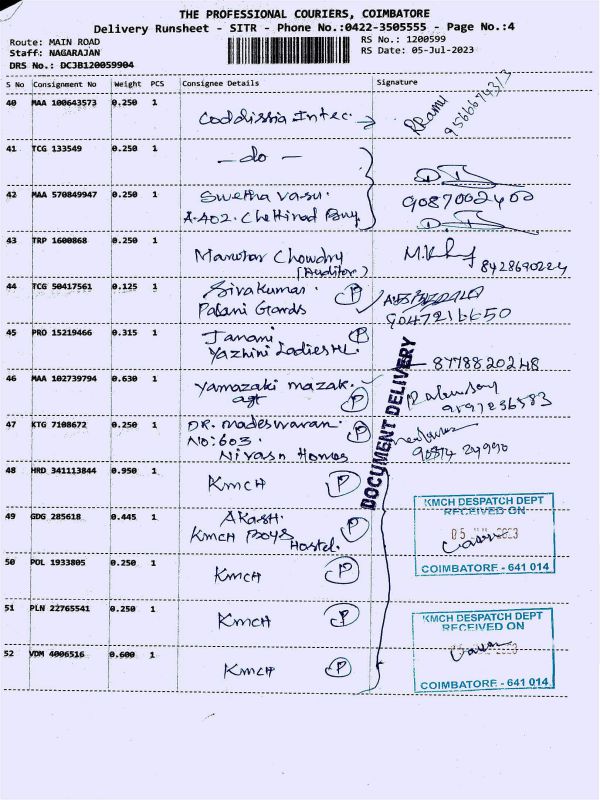 THE PROFESSIONAL COURIERS, COIMBATORE
Delivery Runsheet - SITR - Phone No.:0422-3505555 - Page No.:4
Route: MAIN ROAD
Staff: NAGARAJAN
DRS No.: DCJB120059904
RS No.: 1200599
RS Date: 05-Jul-2023
S No Consignment No Weight PCS Consignee Details Signature
40 MAA 100643573 0.250 1 Coddissia Intec.
9566674313
41 TCG 133549 0.250 1 - do -
42 MAA 570849947 0.250 1 Swetha Vasu. 9087002400
A-402. Chettinad
43 TRP 1600868 0.250 1 Chowdry
(Auditor) 8428690224
44 TCG 50417561 0.125 1 Sivakumar. P
Palani Gards
45 PRO 15219466 0.315 1 Janani P
Yazhini Ladies 8778820248
46 MAA 102739794 0.630 1 Yamazaki mazak.
P
47 KTG 7108672 0.250 1 DR. madeswaran. P
NO: 603.
Nivasn Homes
48 HRD 341113844 0.950 1 KMCH P
49 GDG 285618 0.445 1 AKash. P
KMCH Boys
Hostel.
50 POL 1933805 0.250 1 KMCH P
51 PLN 22765541 0.250 1 KMCH P
52 VDM 4006516 0.600 1 KMCH P
DOCUMENT DELIVERY
KMCH DESPATCH DEPT
RECEIVED ON
COIMBATORE - 641 014
KMCH DESPATCH DEPT
RECEIVED ON
COIMBATORE - 641 014